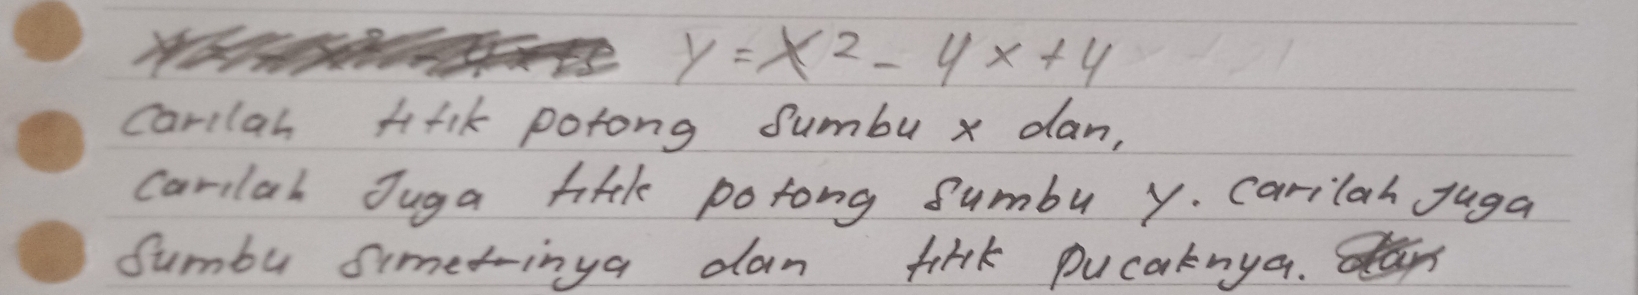 y = x² - 4x + 4
carilah titik potong sumbu x dan,
carilah Juga titik potong sumbu y. carilah Juga
sumbu simetrinya dan titik pucaknya.